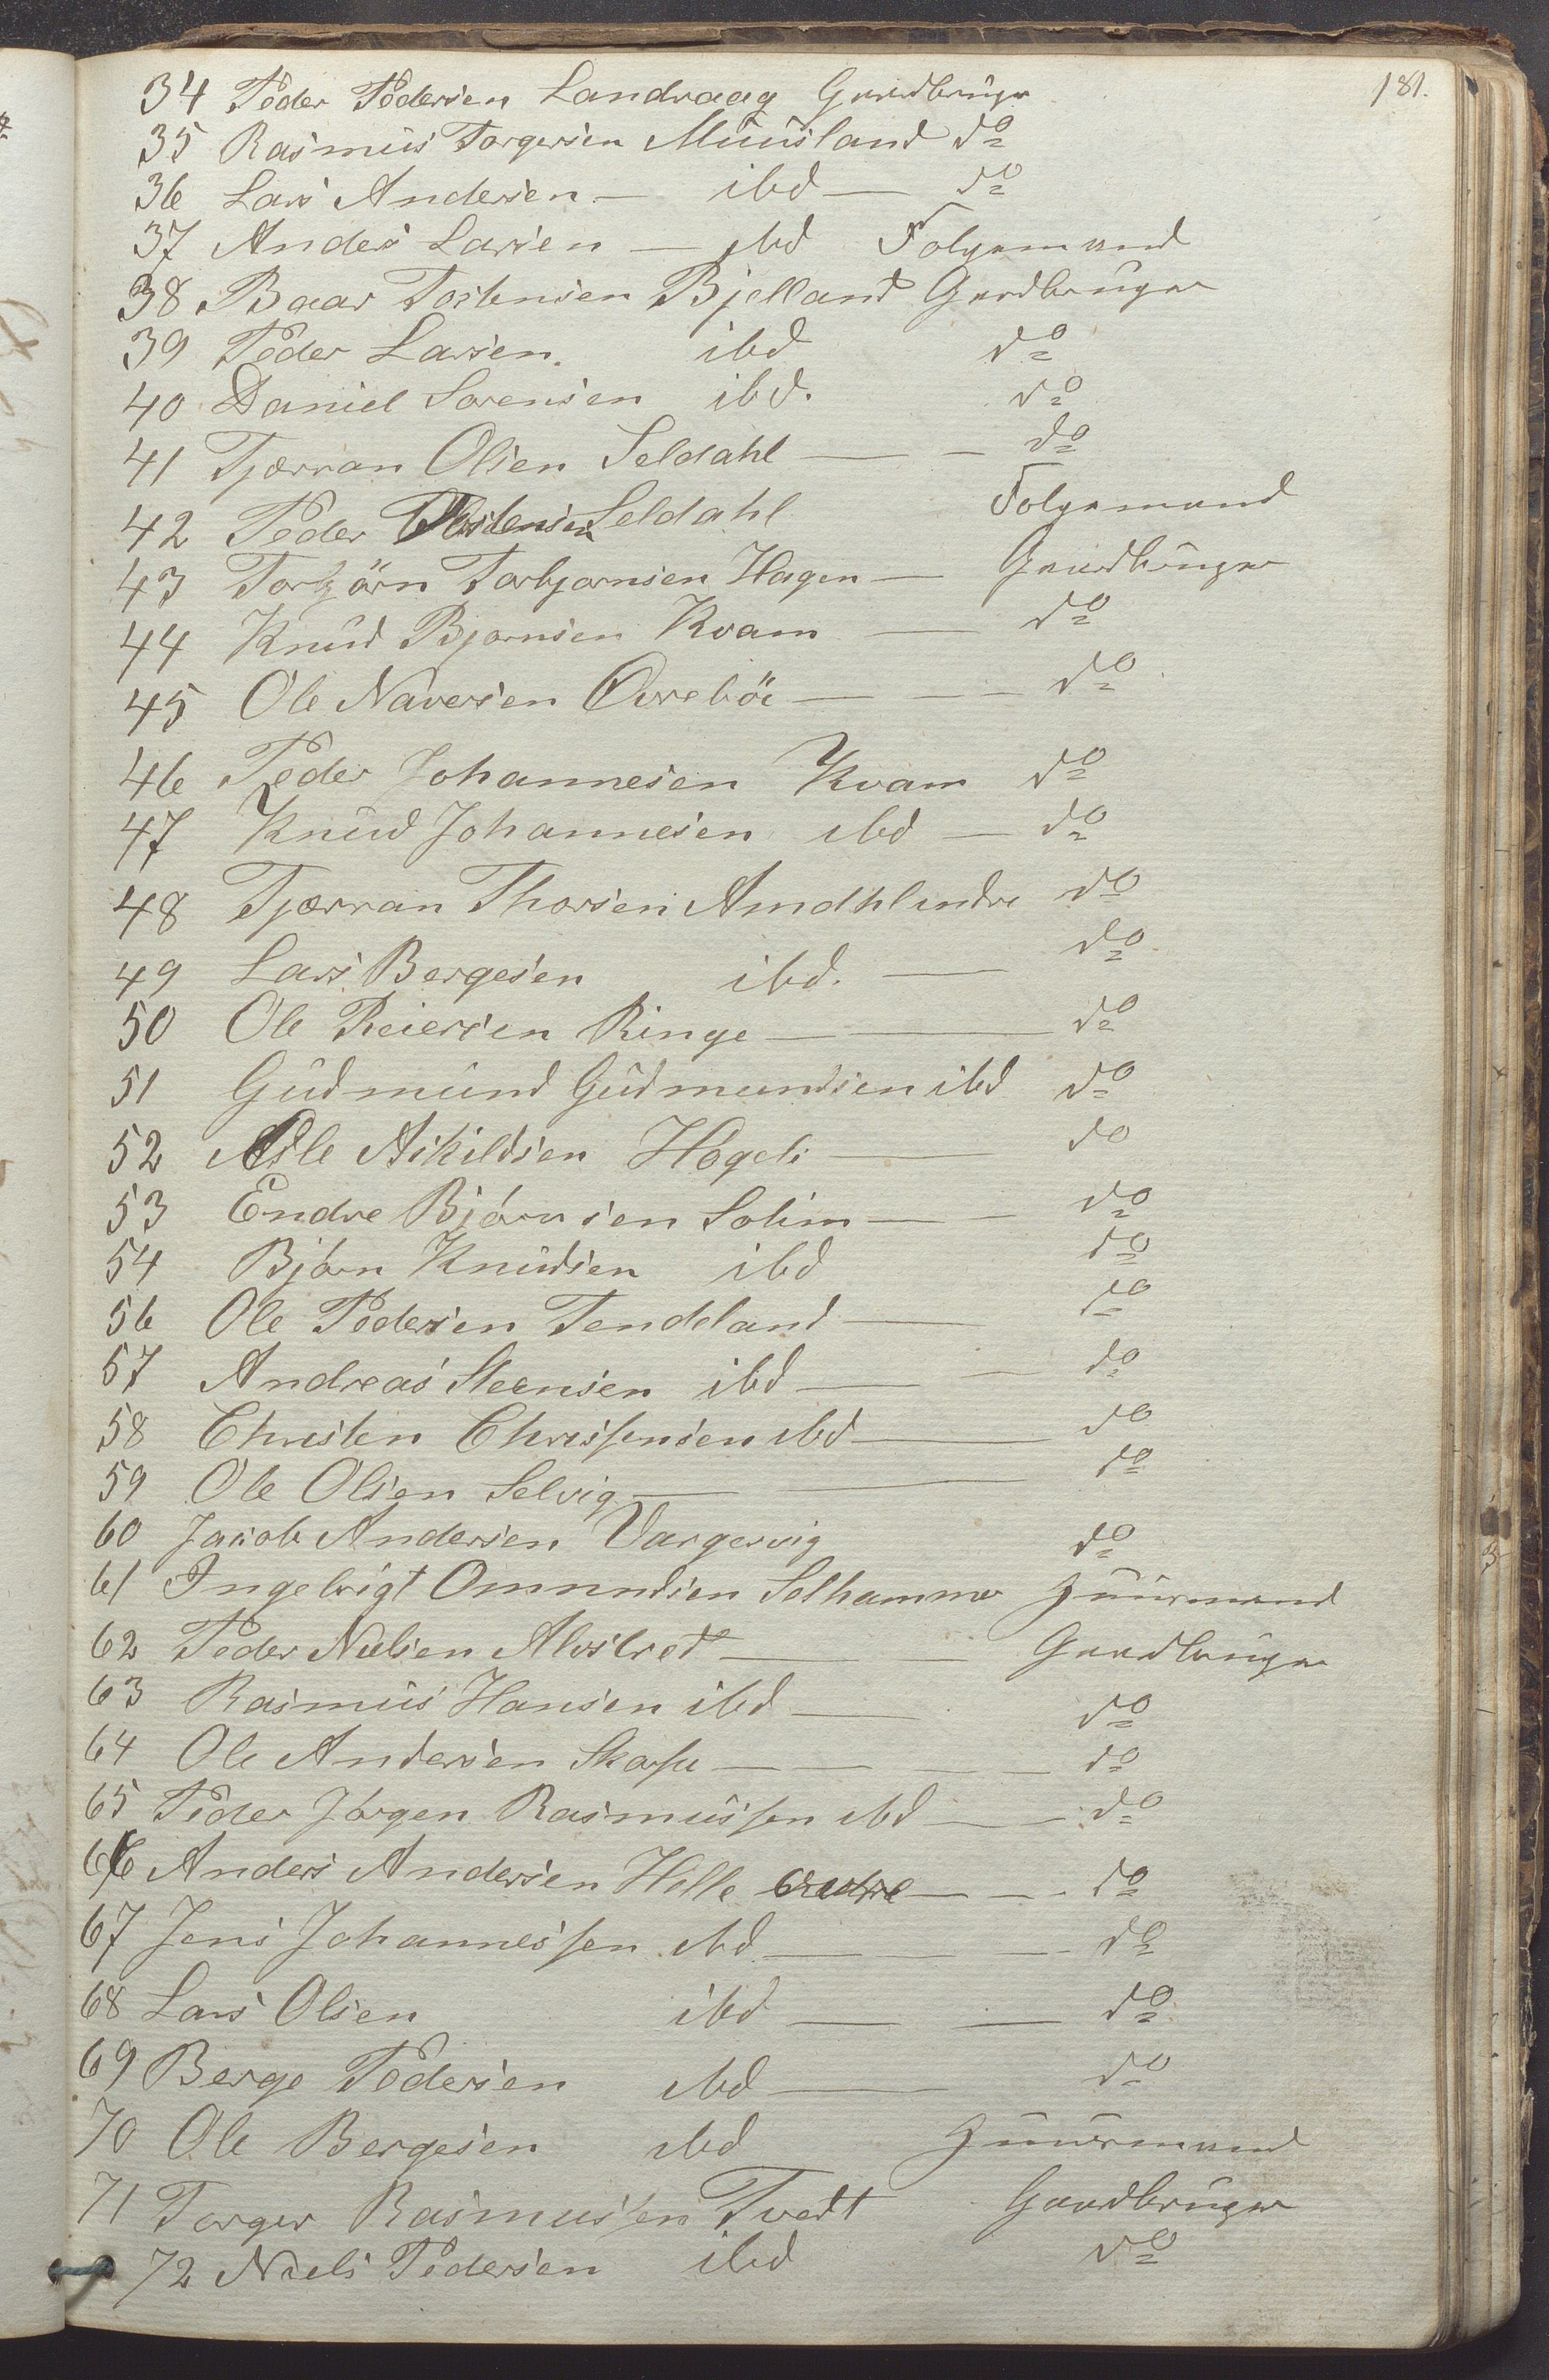 181.
34 Peder Pedersen Landraag Gaardbruger
35 Rasmus Torgersen Muusland do
36 Lars Andersen — ibd — do
37 Anders Larsen — ibd Folgemand
38 Baar Tostensen Bjelland Gardbruger
39 Peder Larsen. ibd do
40 Daniel Sorensen ibd. do
41 Tjærran Olsen Seldahl — — do
42 Peder Tostensen Seldahl Folgemand
43 Torbjörn Torbjornsen Hagen — Gaardbruger
44 Knud Bjornsen Kvam — do
45 Ole Naversen Ovreböe — — — do
46 Peder Johannesen Kvam do
47 Knud Johannesen ibd — do
48 Tjærran Thorsen Amdhl indre do
49 Lars Bergesen ibd. — do
50 Ole Reiersen Ringe — — do
51 Gudmund Gudmundsen ibd do
52 Asle Askildsen Högeli — do
53 Endre Björnsen Solim — — do
54 Björn Knudsen ibd do
56 Ole Pedersen Tendeland — do
57 Andreas Steensen ibd — — do
58 Christen Christensen ibd — do
59 Ole Olsen Selvig — — do
60 Jacob Andersen Vargervig do
61 Ingebrigt Omundsen Solhammer Huusmand
62 Peder Nielsen Alvstvedt — — Gaardbruger
63 Rasmus Hansen ibd — do
64 Ole Andersen — — — do
65 Peder Jörgen Rasmussen ibd — — do
66 Anders Andersen Hille — — do
67 Jens Johannessen ibd — — — do
68 Lars Olsen ibd — — do
69 Berge Pedersen ibd — do
70 Ole Bergesen ibd Huusmand
71 Torger Rasmussen Tvedt Gaardbruger
72 Niels Pedersen ibd do